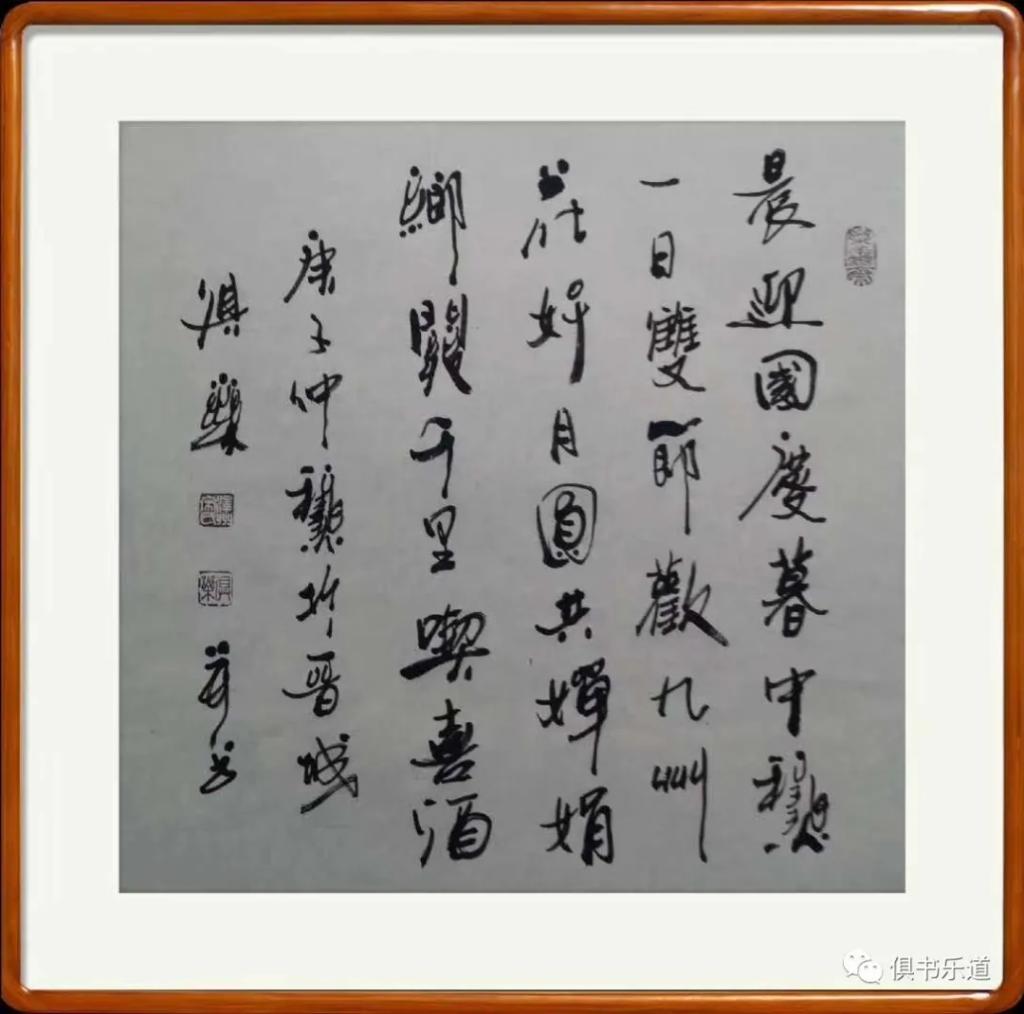 晨迎國慶暮中龝
一日雙節歡九州
花好月圓共嬋娟
鄉關千里喫喜酒
庚子仲龝於晉城
俱樂
俱书乐道